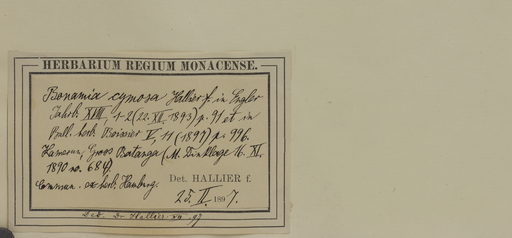 HERBARIUM REGIUM MONACENSE.
Bonamia cymosa Hallier f. in Engler
Jahrb. XVIII, 1-2 (22. XII. 1893) p. 91 et in
Bull. herb. Boissier V, 11 (1897) p. 996.
Kamerun, Gross Batanga (M. Dinklage 16. XI.
1890 no. 684).
Commun. ex herb. Hamburg.
Det. HALLIER f.
25. II. 1897.
Ded. Dr Hallier XII 97